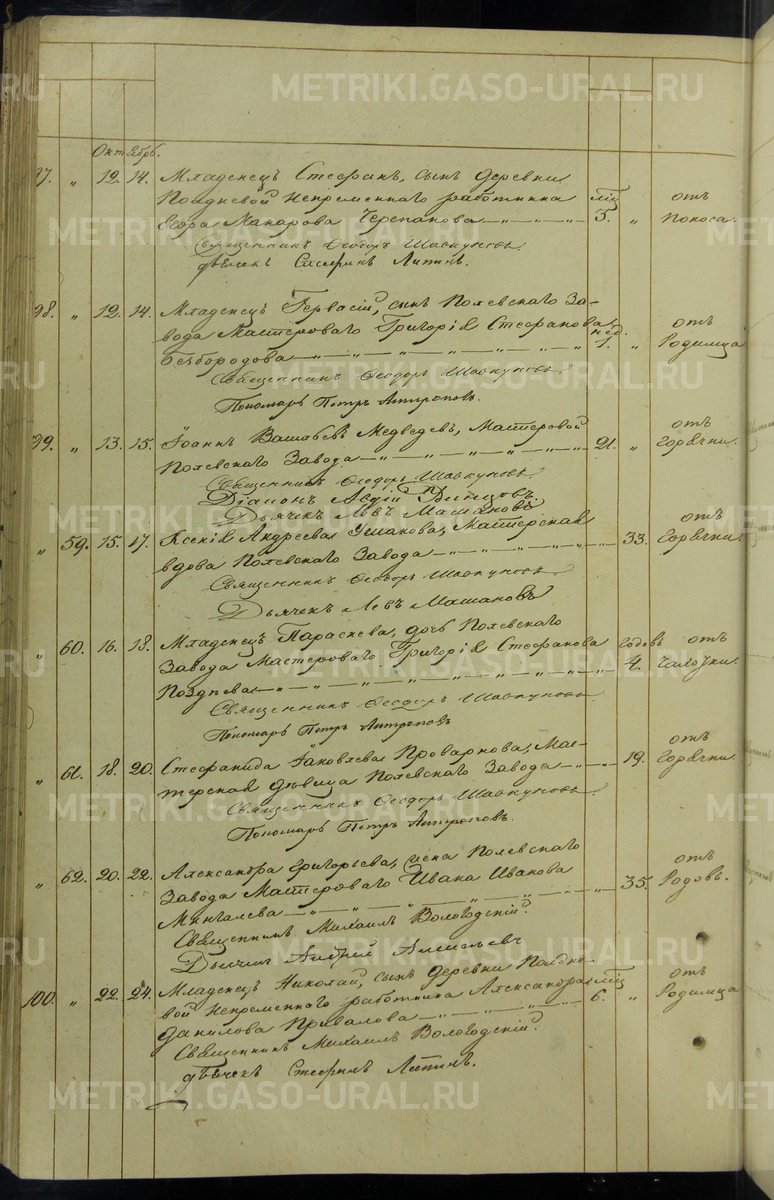 METRIKI.GASO-URAL.RU
Октябрь.
97. „ 12. 14. Младенецъ Стефанъ, сынъ деревни
Полдневой непременнаго работника мѣс. отъ
Егора Макарова Черепанова 3. „ поноса.
Священникъ Ѳеодоръ Шавкуновъ.
дьячекъ Стефанъ Лапинъ.
98. „ 12. 14. Младенецъ Гервасій, сынъ Полевскаго За-
вода Мастероваго Григорія Стефанова нед. отъ
Безбородова 1. „ Родимца
Священникъ Ѳеодоръ Шавкуновъ
Пономарь Петръ Антроповъ.
99. „ 13. 15. Іоаннъ Медведевъ, Мастеровой отъ
Полевскаго Завода 21. „ Горячки.
Священникъ Ѳеодоръ Шавкуновъ
Діаконъ Авдій
Дьячекъ Левъ Машановъ
„ 59. 15. 17. Ксенія Андреева Ушакова, Мастерская отъ
вдова Полевскаго Завода „ 33. Горячки.
Священникъ Ѳеодоръ Шавкуновъ.
Дьячекъ Левъ Машановъ
„ 60. 16. 18. Младенецъ Параскева, дочь Полевскаго
Завода Мастероваго Григорія Стефанова годовъ отъ
Позднева „ 4. Чахотки.
Священникъ Ѳеодоръ Шавкуновъ
Пономарь Петръ Антроповъ
„ 61. 18. 20. Стефанида Іаковлева Мас- отъ
терская дѣвица Полевскаго Завода „ 19. Горячки.
Священникъ Ѳеодоръ Шавкуновъ
Пономарь Петръ Антроповъ.
„ 62. 20. 22. Александра Григорьева, жена Полевскаго отъ
Завода Мастероваго Ивана Иванова „ 35. Родовъ.
Мингалева
Священникъ Михаилъ Вологодскій.
Дьячекъ Андрей
100. „ 22. 24. Младенецъ Николай, сынъ деревни Полдне-
вой непременнаго работника Александра мѣс. отъ
Данилова Привалова 6. „ Родимца
Священникъ Михаилъ Вологодскій.
дьячекъ Стефанъ Лапинъ.